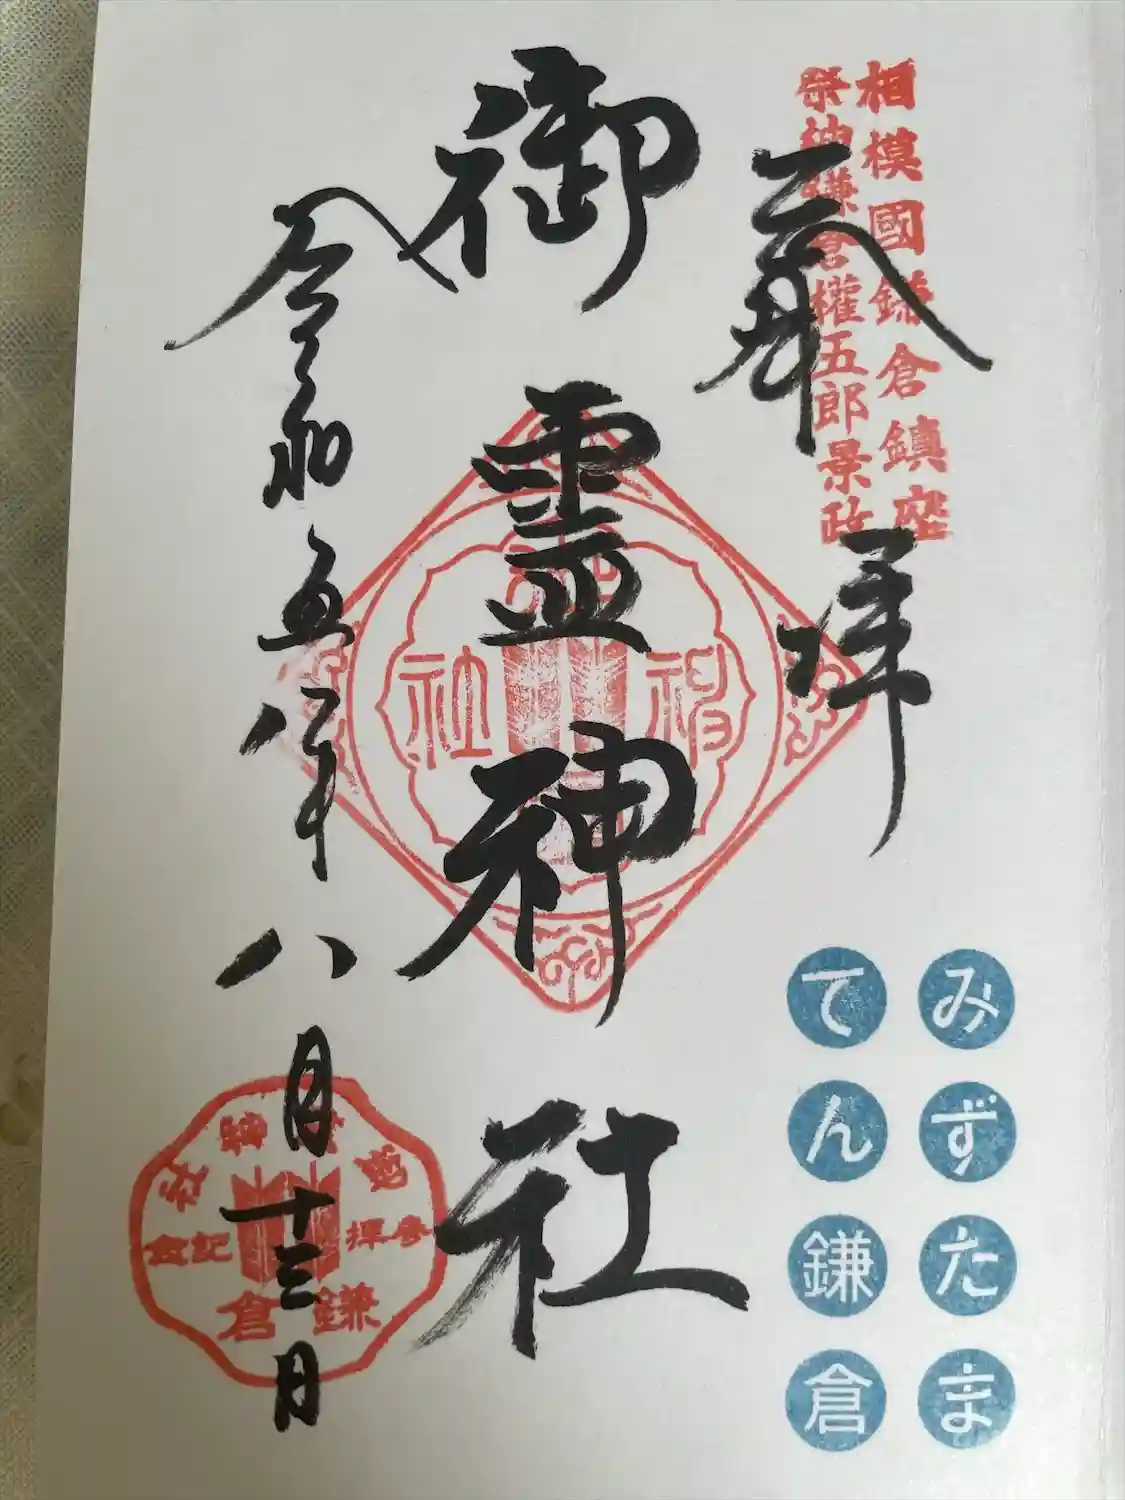 相模國鎌倉鎮座
祭神鎌倉權五郎景政
奉拝
御靈神社
神社
令和五年八月十三日
参拝記念
鎌倉
みずたま
てん鎌倉